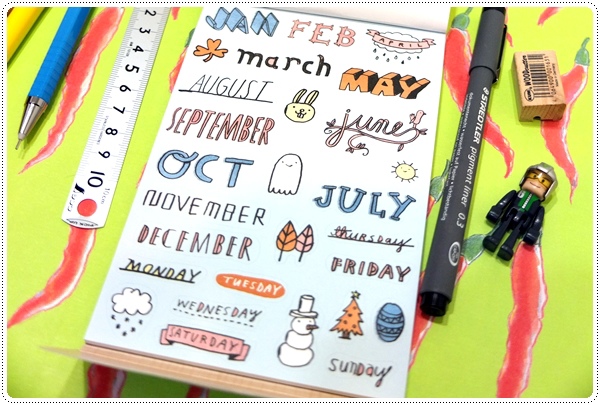 JAN FEB APRIL
march
MAY
AUGUST
SEPTEMBER
june
OCT
JULY
NOVEMBER
THURSDAY
DECEMBER
FRIDAY
MONDAY
TUESDAY
WEDNESDAY
SATURDAY
sunday
3 4 5 6 7 8 9 10
STAEDTLER pigment liner 0.3